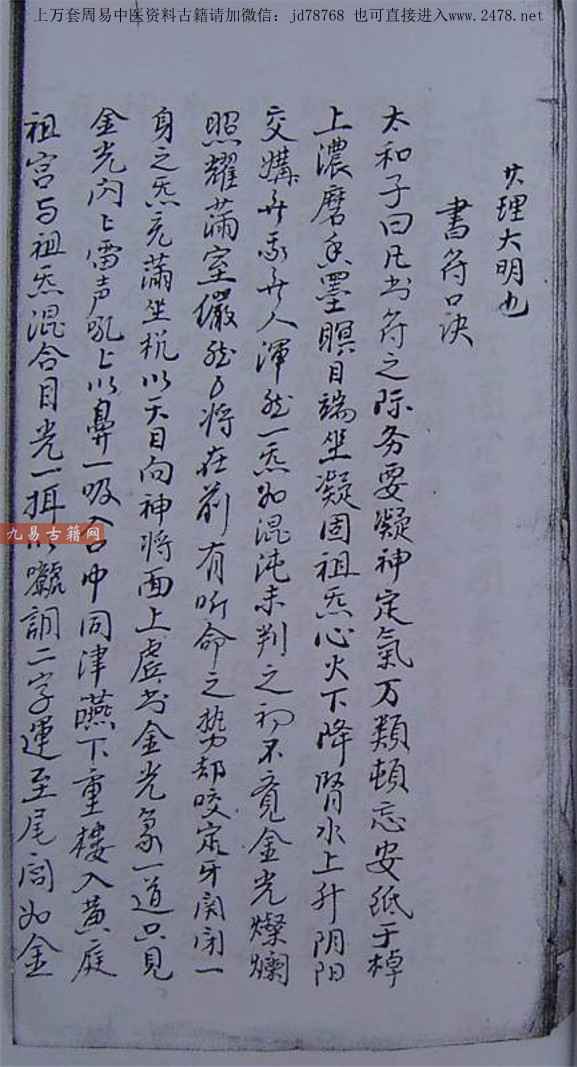 上万套周易中医资料古籍请加微信：jd78768 也可直接进入www.2478.net
其理大明也
書符口诀
太和子曰凡书符之际务要凝神定氣万類頓忘安纸于棹
上濃磨香墨瞑目端坐凝固祖炁心火下降腎水上升阴阳
交媾無我無人渾然一炁如混沌未判之初不覚金光燦爛
照耀滿室儼然 将在前有听命之势却咬定牙関闭一
身之炁充滿坐 以天目向神将面上虚书金光篆一道只见
金光闪上雷声吼上以鼻一吸入口中同津嚥下重楼入黄庭
祖宫与祖炁混合目光一 二字運至尾闾如金
九易古籍网